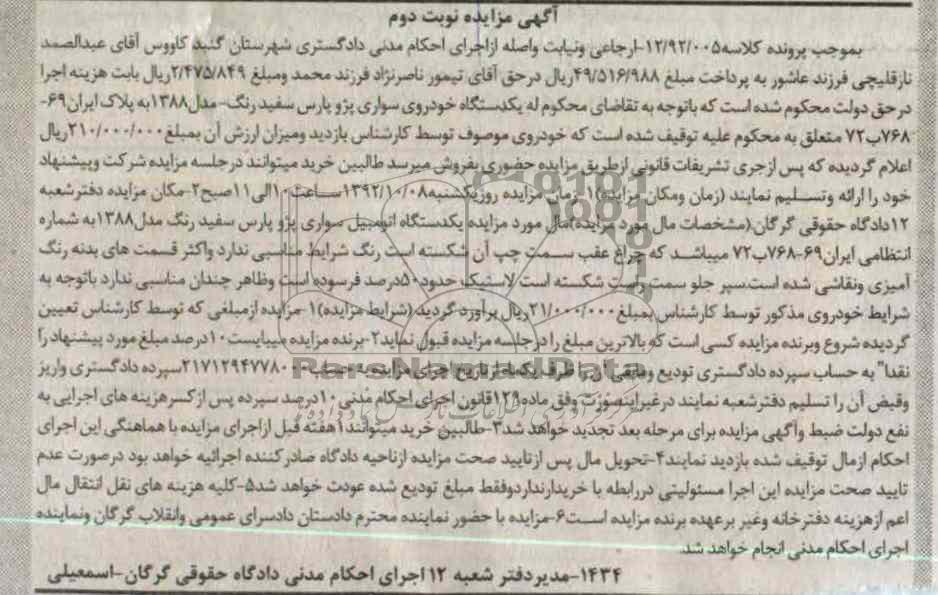 آگهی مزایده نوبت دوم
بموجب پرونده کلاسه۱۲/۹۲/۰۰۵-ارجاعی ونیابت واصله ازاجرای احکام مدنی دادگستری شهرستان گنبد کاووس آقای عبدالصمد
نازقلیچی فرزند عاشور به پرداخت مبلغ ۴۹/۵۱۶/۹۸۸ریال درحق آقای تیمور ناصرنژاد فرزند محمد ومبلغ ۲/۴۷۵/۸۴۹ریال بابت هزینه اجرا
درحق دولت محکوم شده است که باتوجه به تقاضای محکوم له یکدستگاه خودروی سواری پژو پارس سفید رنگ-مدل۱۳۸۸به پلاک ایران۶۹-
۷۶۸ب۷۲ متعلق به محکوم علیه توقیف شده است که خودروی موصوف توسط کارشناس بازدید ومیزان ارزش آن بمبلغ۲۱۰/۰۰۰/۰۰۰ریال
اعلام گردیده که پس ازجری تشریفات قانونی ازطریق مزایده حضوری بفروش میرسد طالبین خرید میتوانند درجلسه مزایده شرکت وپیشنهاد
خود را ارائه وتسلیم نمایند (زمان ومکان مزایده)۱-زمان مزایده روزیکشنبه۱۳۹۲/۱۰/۰۸ساعت۱۰الی۱۱صبح۲-مکان مزایده دفترشعبه
۱۲دادگاه حقوقی گرگان.(مشخصات مال مورد مزایده)مال مورد مزایده یکدستگاه اتومبیل سواری پژو پارس سفید رنگ مدل۱۳۸۸به شماره
انتظامی ایران۶۹-۷۶۸ب۷۲ میباشد که چراغ عقب سمت چپ آن شکسته است رنگ شرایط مناسبی ندارد واکثر قسمت های بدنه رنگ
آمیزی ونقاشی شده است.سپر جلو سمت راست شکسته است لاستیک حدود۵۰درصد فرسوده است وظاهر چندان مناسبی ندارد باتوجه به
شرایط خودروی مذکور توسط کارشناس بمبلغ۲۱/۰۰۰/۰۰۰ریال برآورد گردید (شرایط مزایده)۱-مزایده ازمبلغی که توسط کارشناس تعیین
گردیده شروع وبرنده مزایده کسی است که بالاترین مبلغ را درجلسه مزایده قبول نماید۲-برنده مزایده میبایست۱۰درصد مبلغ مورد پیشنهاد را
نقدا" به حساب سپرده دادگستری تودیع ومابقی آن را ظرف یکماه ازتاریخ اجرای مزایده به حساب سپرده دادگستری واریز
وقبض آن را تسلیم دفترشعبه نمایند درغیراینصورت وفق ماده۱۲۹قانون اجرای احکام مدنی۱۰درصد سپرده پس ازکسرهزینه های اجرایی به
نفع دولت ضبط وآگهی مزایده برای مرحله بعد تجدید خواهد شد۳-طالبین خرید میتوانند۱هفته قبل ازاجرای مزایده با هماهنگی این اجرای
احکام ازمال توقیف شده بازدید نمایند۴-تحویل مال پس ازتایید صحت مزایده ازناحیه دادگاه صادرکننده اجرائیه خواهد بود درصورت عدم
تایید صحت مزایده این اجرا مسئولیتی دررابطه با خریدارنداردوفقط مبلغ تودیع شده عودت خواهد شد۵-کلیه هزینه های نقل انتقال مال
اعم ازهزینه دفترخانه وغیر برعهده برنده مزایده است۶-مزایده با حضور نماینده محترم دادستان دادسرای عمومی وانقلاب گرگان ونماینده
اجرای احکام مدنی انجام خواهد شد.
۱۴۳۴-مدیردفتر شعبه ۱۲ اجرای احکام مدنی دادگاه حقوقی گرگان-اسمعیلی
ParsNamadData